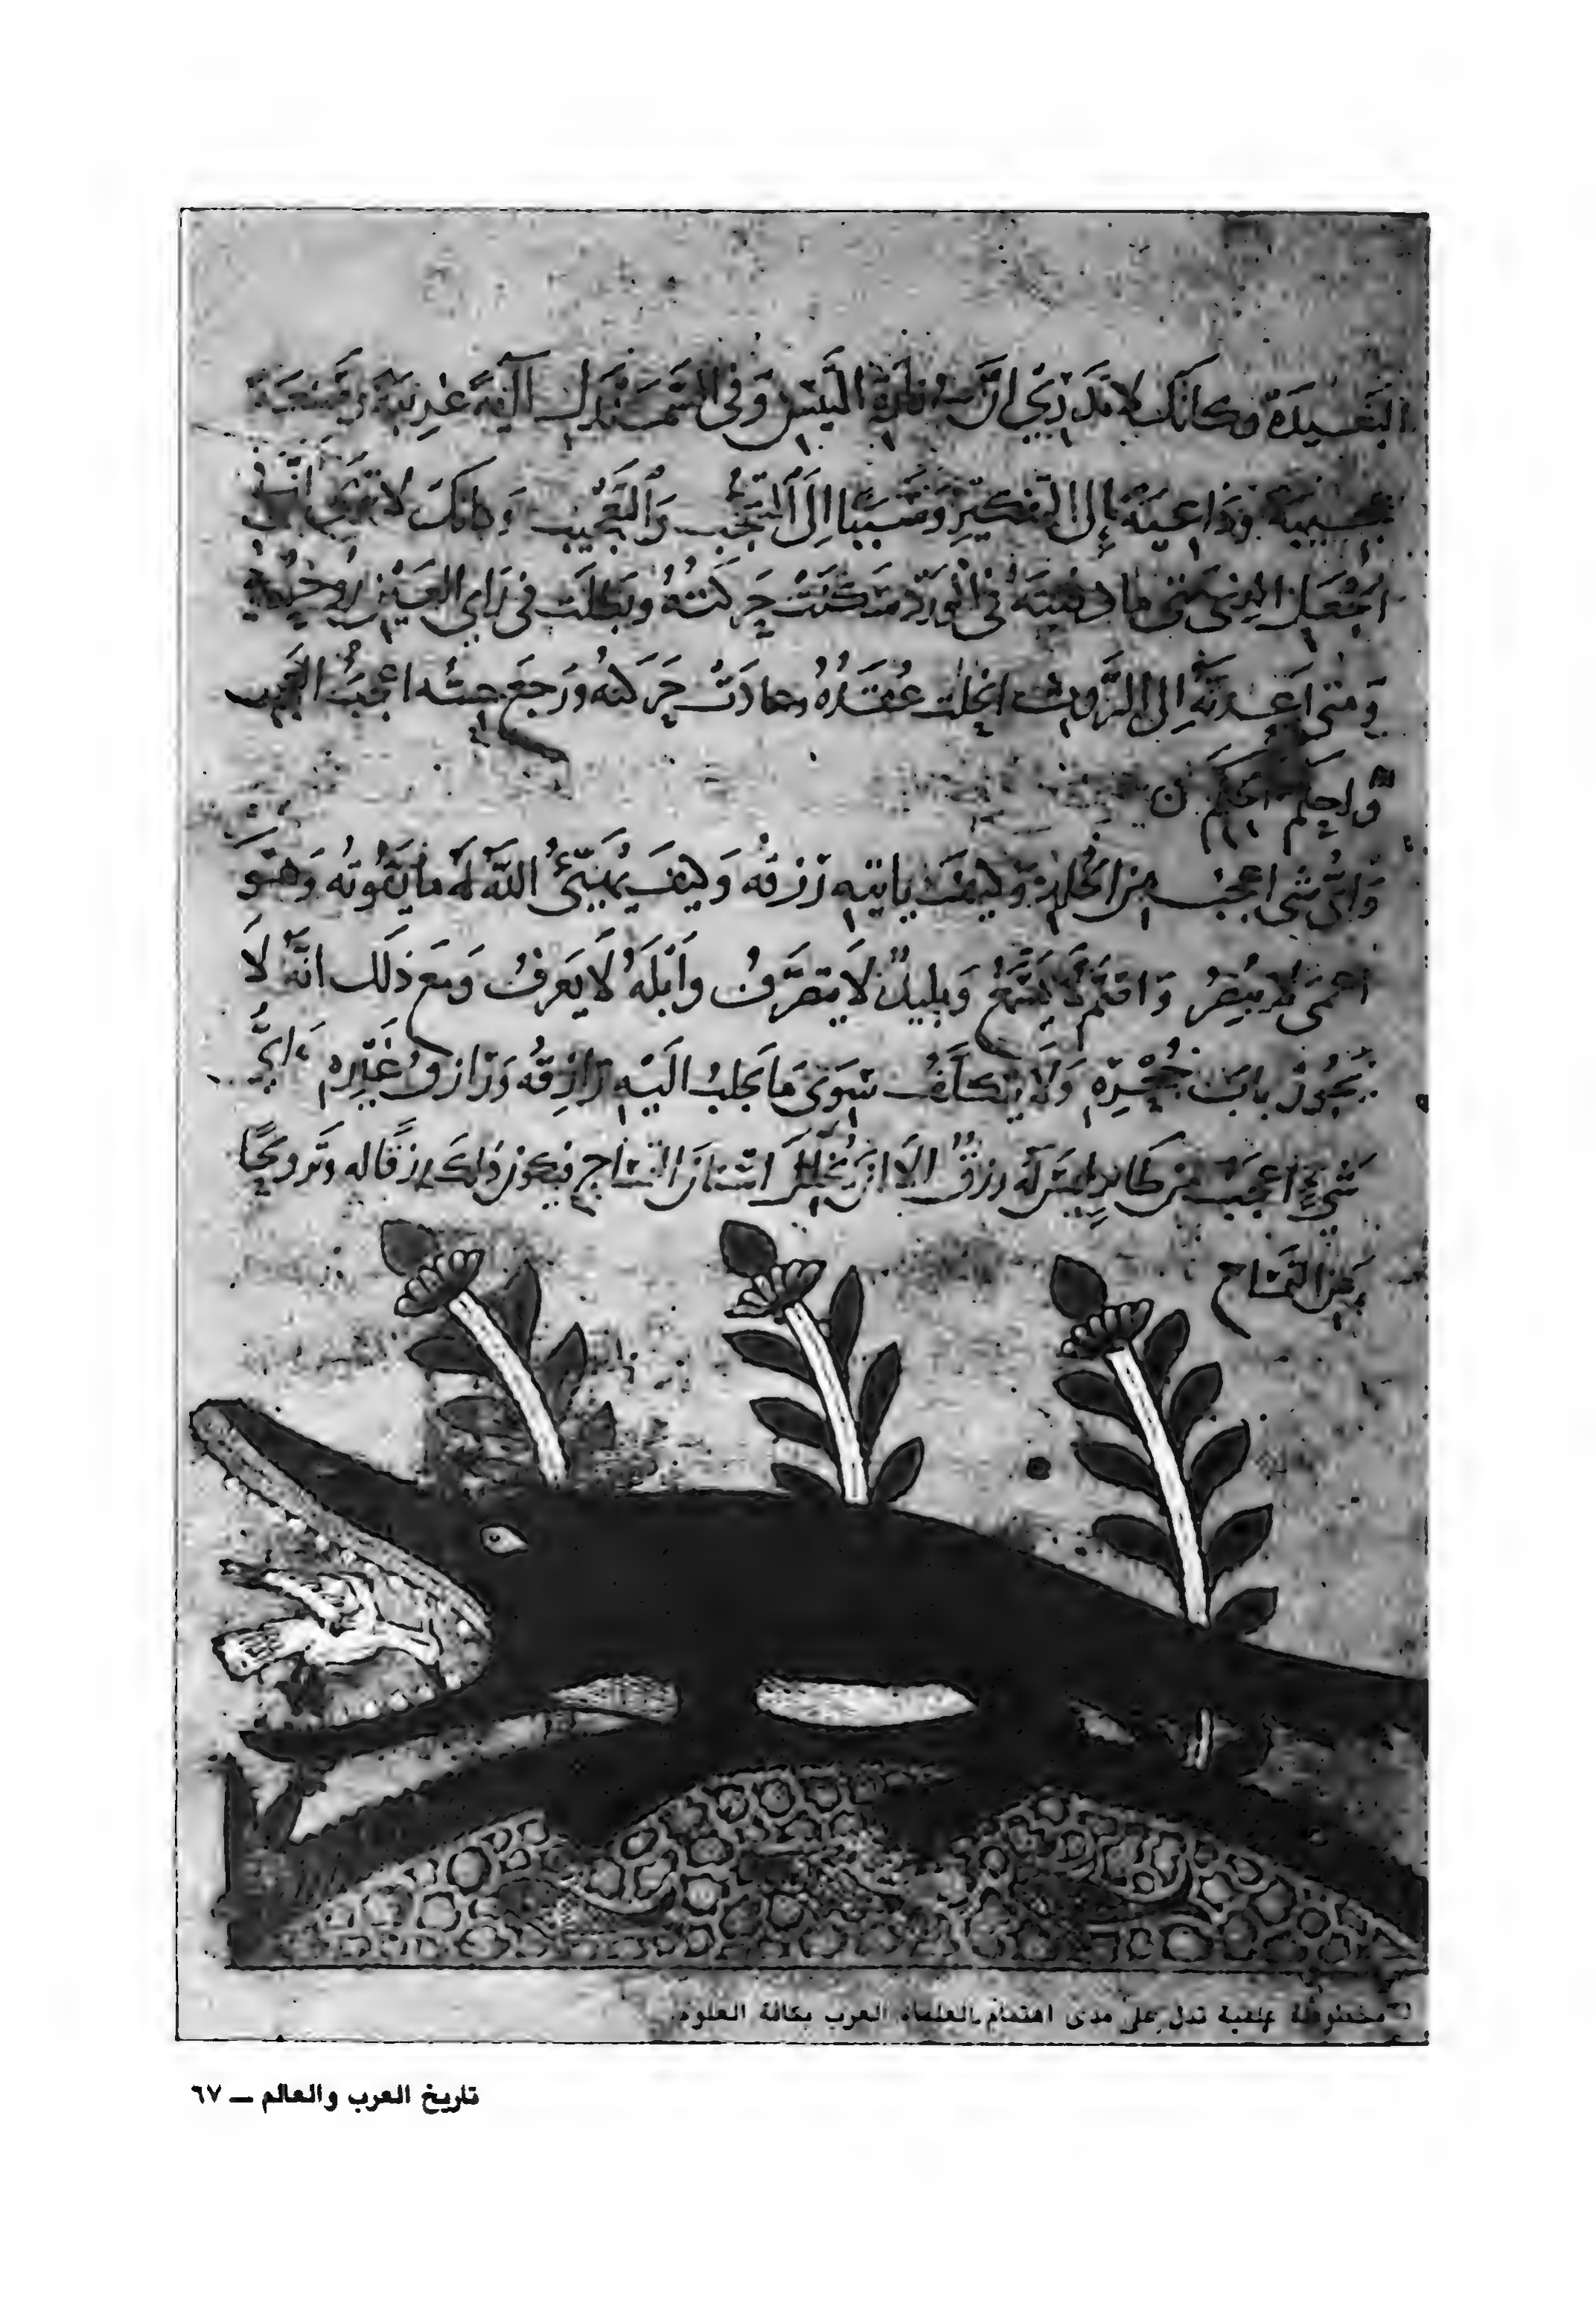 البعيدة وكأنك لا تدري أن في البيش وفي السمندل آية غريبة وصنعة
عجيبة وداعية إلى التفكير وسببا إلى التعجب والتعجيب وكأنك لا
الجعل الذي متى ما دفنته في الورد سكنت حركته وبطلت في رأي العين روحه
ومتى أعدته إلى الروث انحلت عقده وعادت حركته ورجع حسه اعجب العجب
واحكم الحكم
وأي شي اعجب من الخلد وكيف ياتيه رزقه وكيف يهيئ الله له ما يقوته وهو
اعمى لا يبصر واصم لا يسمع وبليد لا يتصرف وابله لا يعرف ومع ذلك انه لا
يجوز باب جحره ولا يتكلف سوى ما يجلب اليه رازقه ورازق غيره وأي
شي اعجب من طائر ليس له رزق الا ان يخلل اسنان التمساح فيكون ذلك رزقا له وترويحا
عن التمساح
مخطوطة علمية تدل على مدى اهتمام العلماء العرب بكافة العلوم.
تاريخ العرب والعالم ــ ٦٧